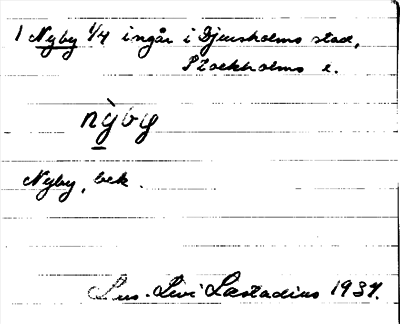 1 Nyby 1/4 ingår i Djursholms stad,
Stockholms l.
nỳby
Nyby, bek.
Lws. Levi Læstadius 1937.